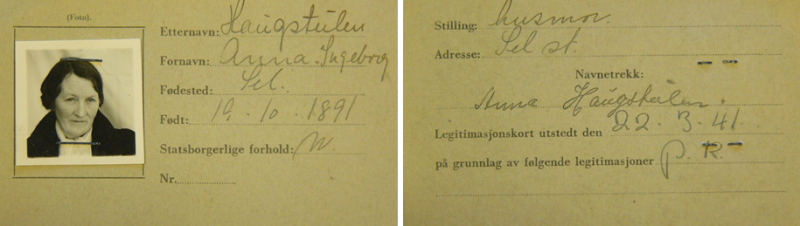 (Foto).
Etternavn: Haugstulen
Fornavn: Anna Ingeborg
Fødested: Sel.
Født: 19.10.1891
Statsborgerlige forhold: N.
Nr.
Stilling: husmor.
Adresse: Sel st.
Navnetrekk:
Anna Haugstulen.
Legitimasjonskort utstedt den 22.3.41
på grunnlag av følgende legitimasjoner p. R.